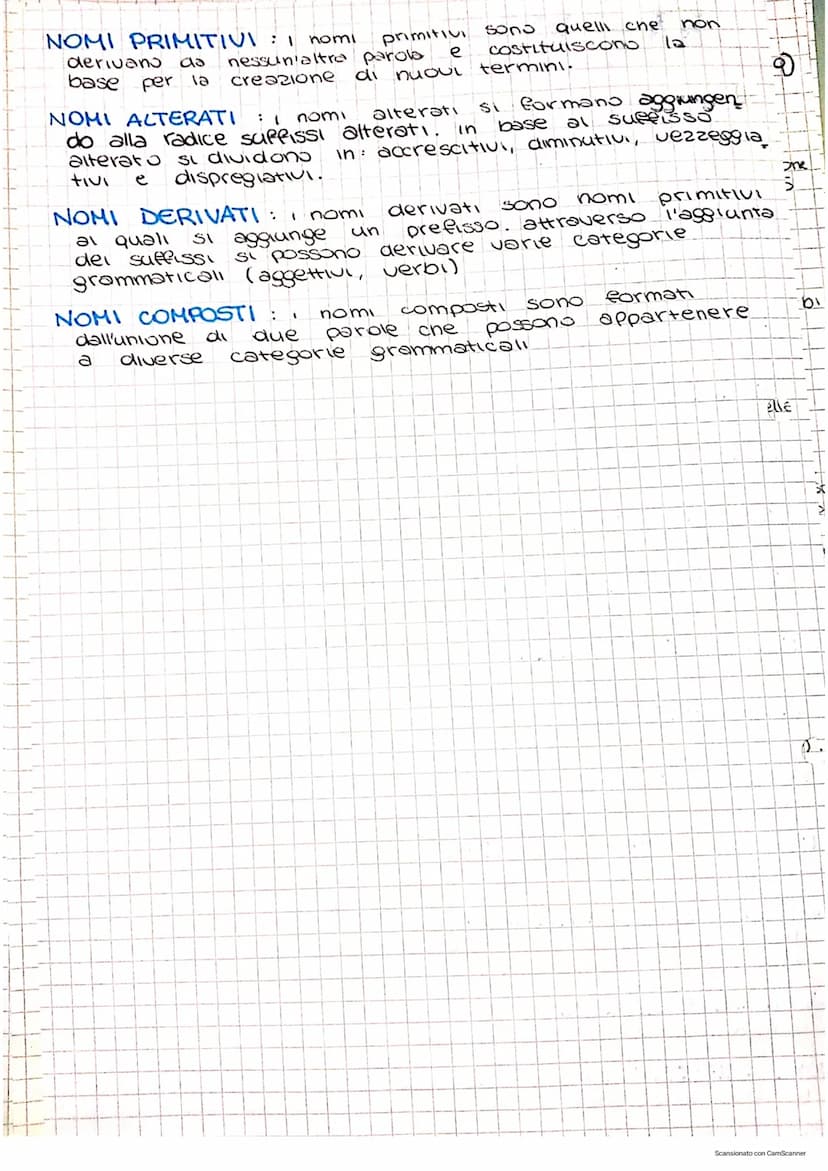 NOMI PRIMITIVI : i nomi primitivi sono quelli che non
derivano da nessun'altra parola e costituiscono la
base per la creazione di nuovi termini.
9)
NOMI ALTERATI : i nomi alterati si formano aggiungen
do alla radice suffissi alterati. in base al suffisso
alterato si dividono in: accrescitivi, diminutivi, vezzeggia
tivi e dispregiativi.
NOMI DERIVATI : i nomi derivati sono nomi primitivi
ai quali si aggiunge un prefisso. attraverso l'aggiunta
dei suffissi si possono derivare varie categorie
grammaticali (aggettivi, verbi)
NOMI COMPOSTI : i nomi composti sono formati
dall'unione di due parole che possono appartenere
a diverse categorie grammaticali
bi
elle
Scansionato con CamScanner